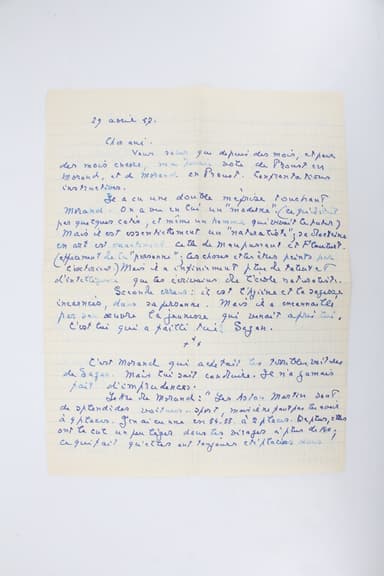 29 avril 57.
Cher ami.
Vous savez que depuis des mois, et pour
des mois encore, ma pensée vole de Proust en
Morand, et de Morand en Proust. Confrontations
instructives.
Il y a eu une double méprise touchant
Morand. On a vu en lui un "moderne" (ce qu'il était
par quelques cotés, et même un homme qui vivait
Mais il est essentiellement un "naturaliste"; sa doctrine
en art est exactement celle de Maupassant et Flaubert.
(effacement de la "personne"; les choses et les êtres peints
l'extérieur) Mais il a infiniment plus de talent et
d'intelligence que les écrivains de l'école naturaliste.
Seconde erreur: il est l'hygiène et la sagesse
incarnées, dans sa personne. Mais il a encanaillé
par son œuvre la jeunesse qui venait après lui.
C'est lui qui a failli tuer Sagan.
C'est Morand qui achetait les voitures
de Sagan. Mais lui sait conduire. Il n'a jamais
fait d'imprudences.
Lettre de Morand: "Les Aston Martin sont
de splendides voitures sport, mais ne peut pas les avoir
à 4 places. J'en ai eu une en 54-55. à 2 places. De plus, elles
ont le cul un peu léger dans les virages à plus de 140,
ce qui fait qu'elles ont toujours été placées dans